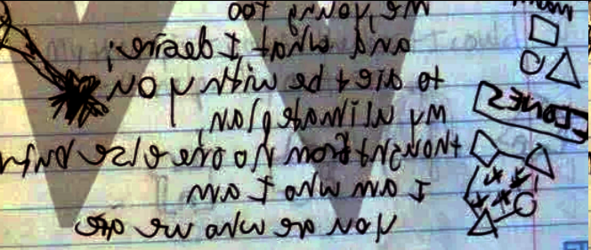 me, young too
and what I desire;
to be with you
my ulimate plan,
thought from no one else but
I am who I am
you are who we are